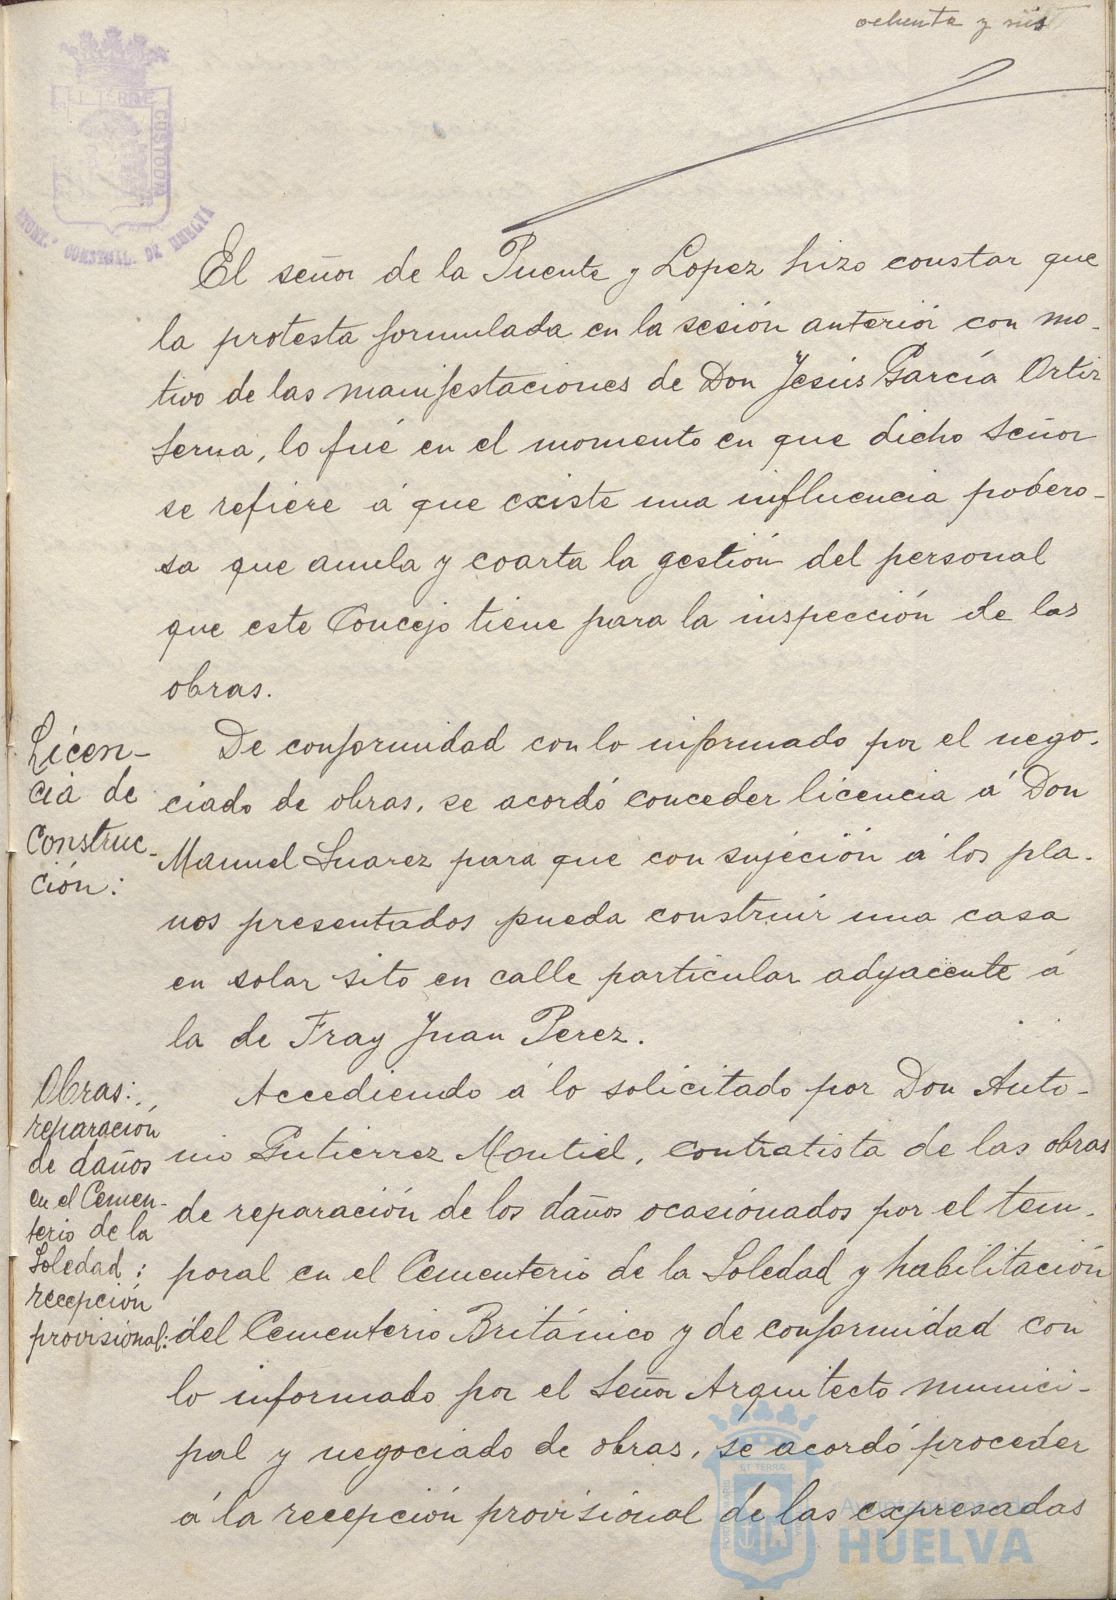 ochenta y seis
El señor de la Puente y Lopez hizo constar que
la protesta formulada en la sesión anterior con mo-
tivo de las manifestaciones de Don Jesús García Ortiz
Serna, lo fué en el momento en que dicho Señor
se refiere á que existe una influencia podero-
sa que anula y coarta la gestión del personal
que este Concejo tiene para la inspección de las
obras.
Licen-
cia de
Construc-
ción:
De conformidad con lo informado por el nego-
ciado de obras, se acordó conceder licencia á Don
Manuel Suarez para que con sujeción á los pla-
nos presentados pueda construir una casa
en solar sito en calle particular adyacente á
la de Fray Juan Perez.
Obras:
reparación
de daños
en el Cemen-
terio de la
Soledad;
recepción
provisional:
Accediendo á lo solicitado por Don Anto-
nio Gutierrez Montiel, contratista de las obras
de reparación de los daños ocasionados por el tem-
poral en el Cementerio de la Soledad y habilitación
del Cementerio Británico y de conformidad con
lo informado por el Señor Arquitecto munici-
pal y negociado de obras, se acordó proceder
á la recepción provisional de las expresadas
Ayuntamiento de
HUELVA